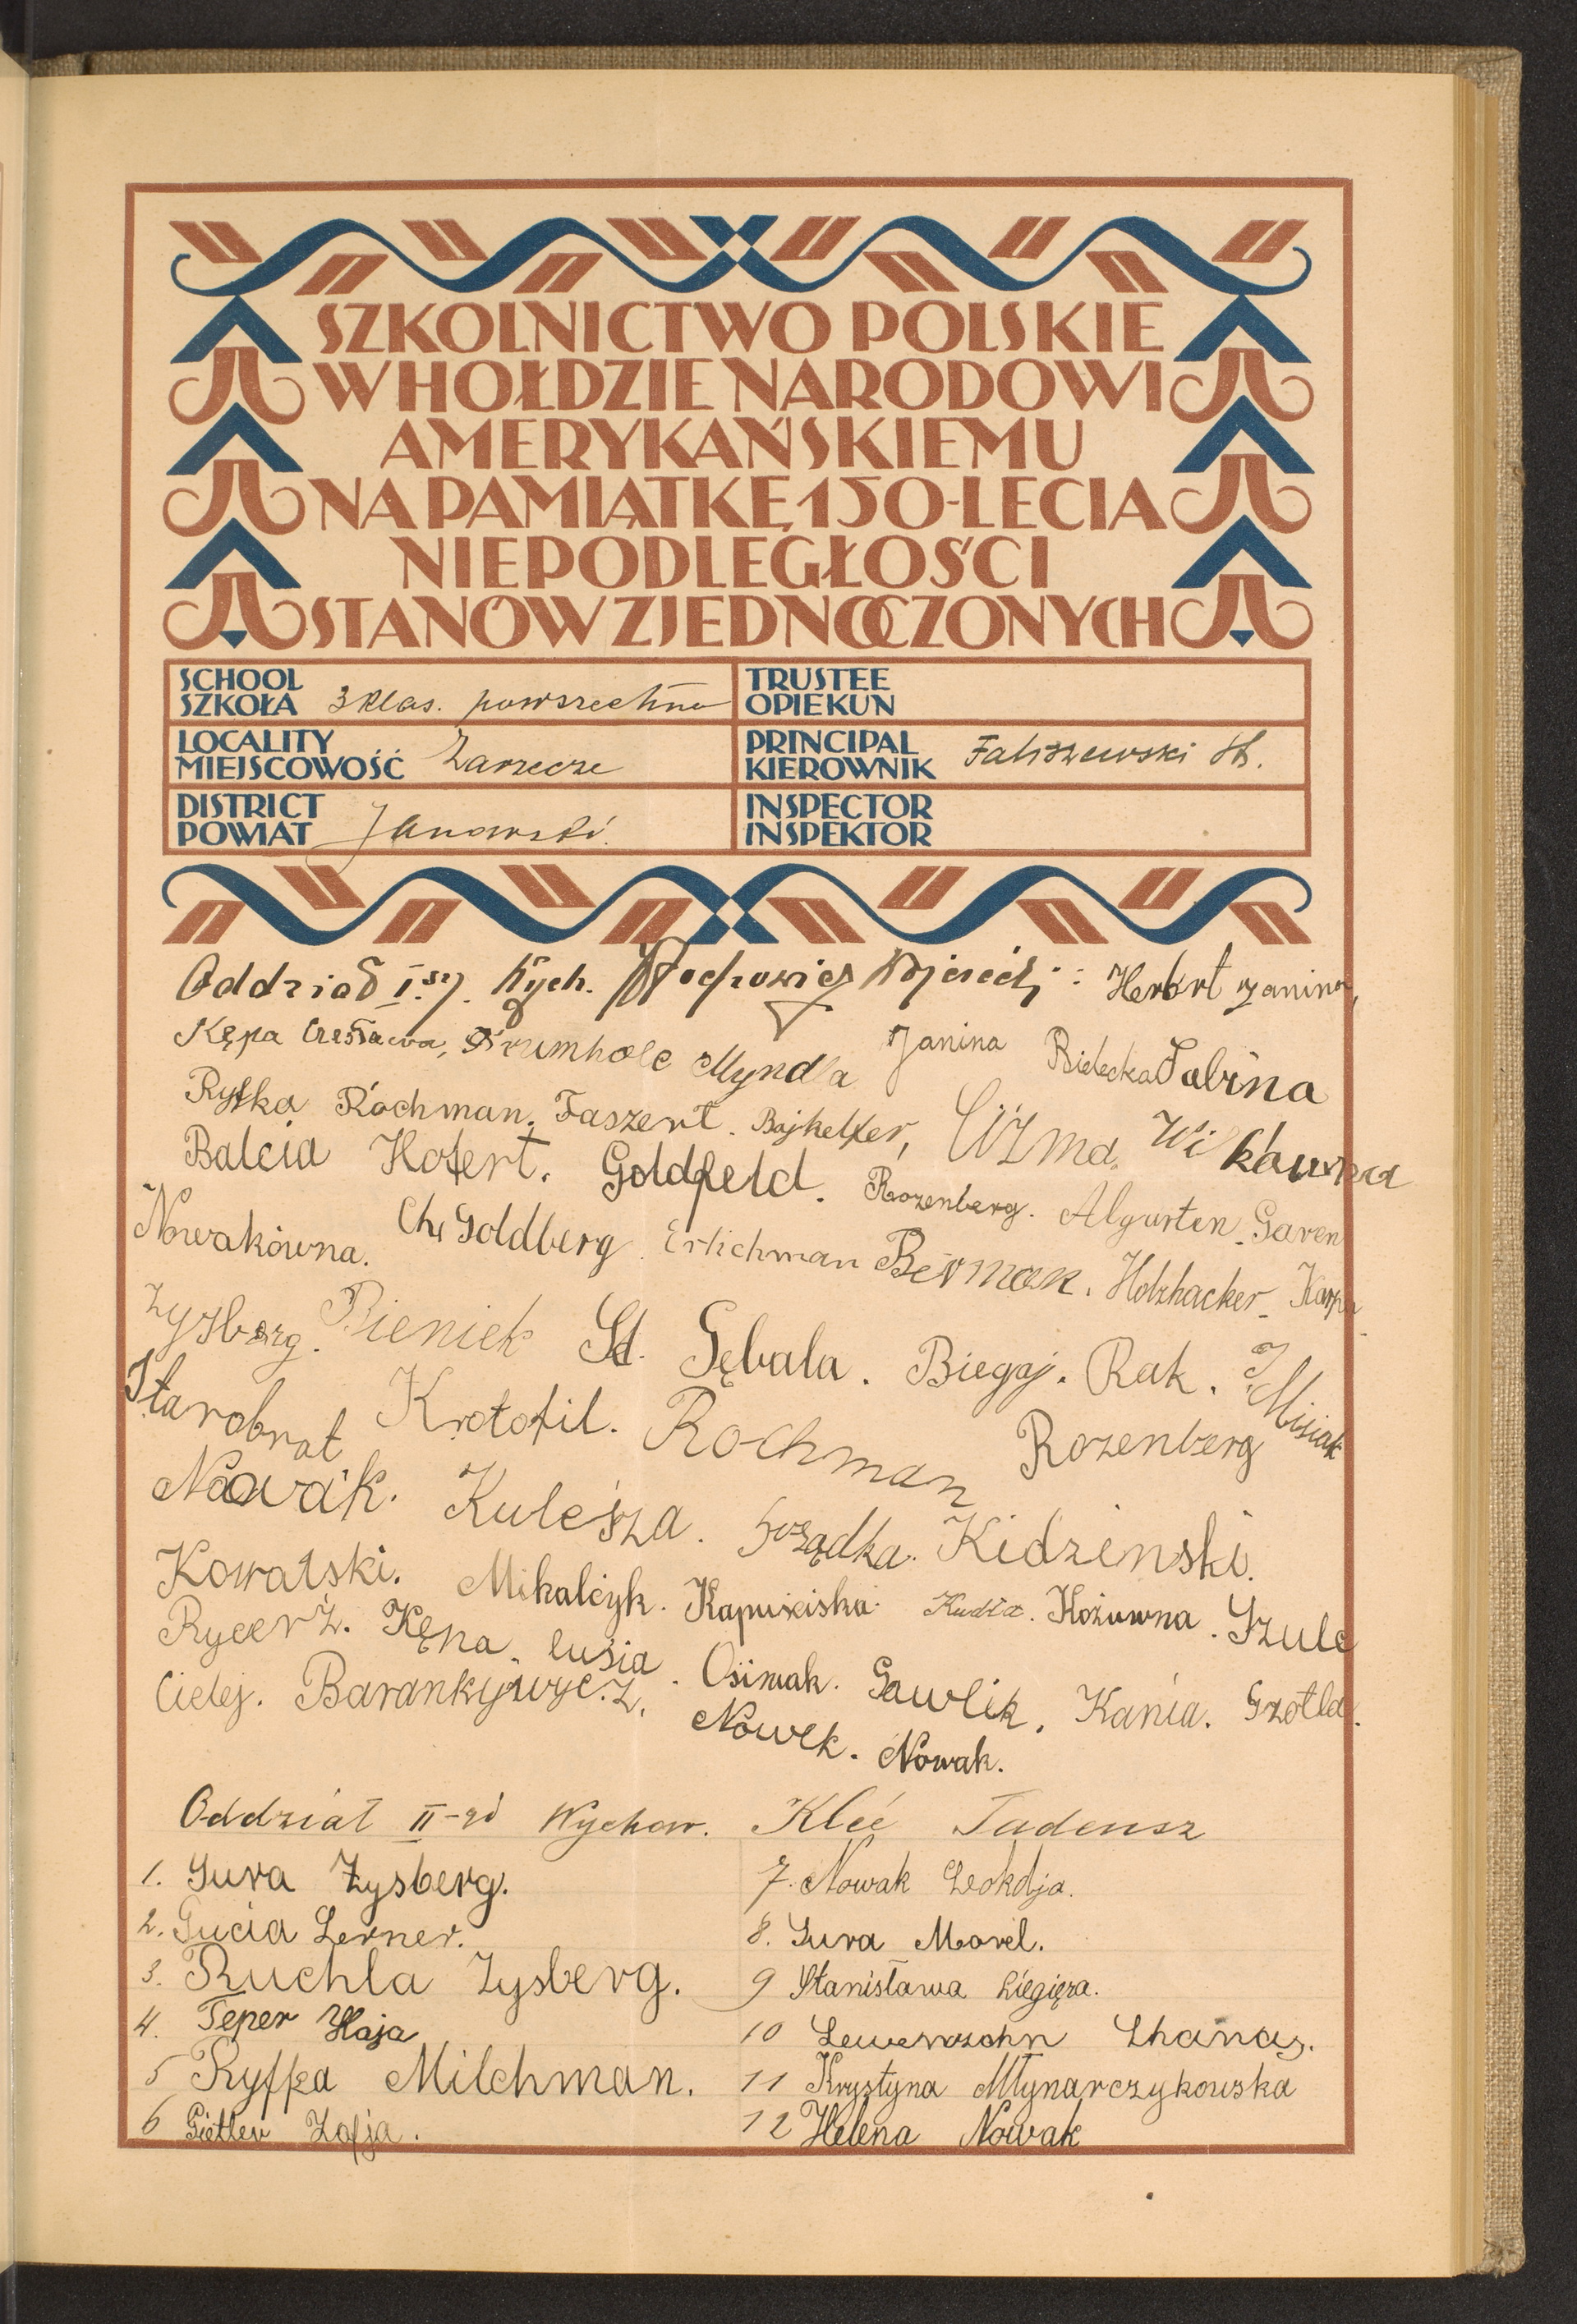 SZKOLNICTWO POLSKIE
W HOŁDZIE NARODOWI
AMERYKAŃSKIEMU
NA PAMIĄTKĘ 150-LECIA
NIEPODLEGŁOŚCI
STANÓW ZJEDNOCZONYCH
SCHOOL
SZKOŁA 3 klas. powszechna
TRUSTEE
OPIEKUN
LOCALITY
MIEJSCOWOŚĆ Zarzecze
PRINCIPAL
KIEROWNIK Faliszewski St.
DISTRICT
POWIAT Janowski.
INSPECTOR
INSPEKTOR
Oddział I.szy. Wych. Wojciech: Herbrt Janina,
Kępa Czesława, Krumholc Myndla Janina Bielecka Sabina
Ryfka Rochman. Faszert. Bajkelfer, Ciżma. Wi kówna
Balcia Hofert. Goldfeld. Rozenberg. Algurten. Garen
Nowakówna. Ch. Goldberg. Erlichman Berman. Holzhacker. Karp
Zysberg. Pieniek St. Gębala. Biegaj. Rak. J. Misiak
Starobrat Krotofil. Rochman Rozenberg
Nowak. Kulesza. Kidzinski.
Kowalski. Mikalczyk. Kapusciska. Kudła. Kożuwna. Szulc
Rycerz. Kępa. Lusia. Osiniak. Gawlik. Kania. Gzotla.
Cielej. Barankywycz. Nowek. Nowak.
Oddział II-gi Wychow. Kleć Tadeusz
1. Sura Zysberg.
2. Gucia Lerner.
3. Ruchla Zysberg.
4. Teper Haja
5 Ryfka Milchman.
6 Gietler Zofja.
7. Nowak Leokdja.
8. Sura Morel.
9 Stanisława Liegięza.
10 Lewenzohn Chana.
11 Krystyna Młynarczykowska
12 Helena Nowak